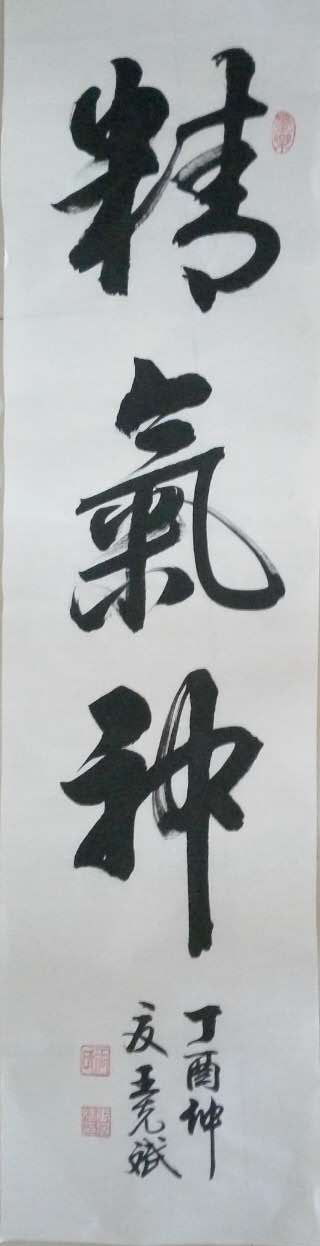 精氣神
丁酉仲
夏王克斌